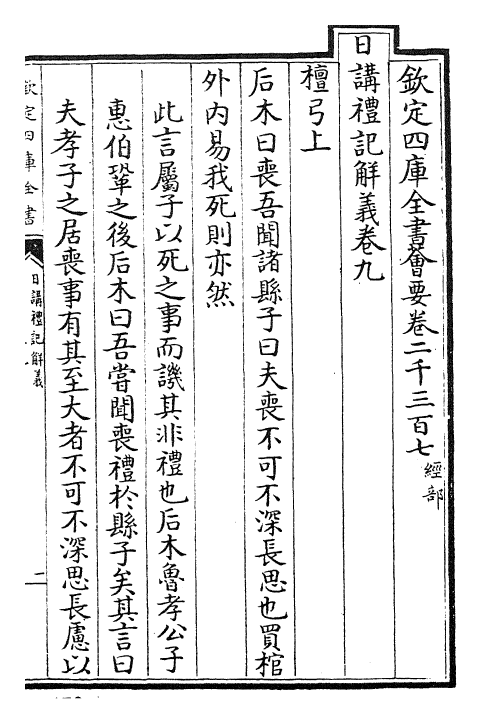 欽定四庫全書薈要卷二千三百七 經部
日講禮記解義卷九
檀弓上
后木曰喪吾聞諸縣子曰夫喪不可不深長思也買棺
外内易我死則亦然
此言屬子以死之事而譏其非禮也后木魯孝公子
惠伯鞏之後后木曰吾嘗聞喪禮於縣子矣其言曰
夫孝子之居喪事有其至大者不可不深思長慮以
欽定四庫全書
日講禮記解義